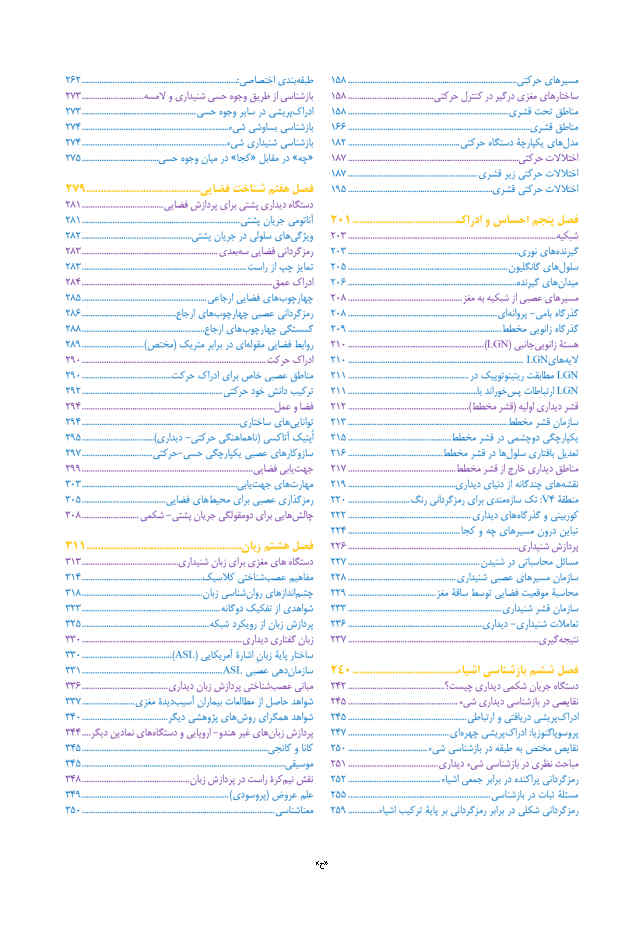 مسیرهای حرکتی ۱۵۸
ساختارهای مغزی درگیر در کنترل حرکتی ۱۵۸
مناطق تحت قشری ۱۵۸
مناطق قشری ۱۶۶
مدل‌های یکپارچهٔ دستگاه حرکتی ۱۸۲
اختلالات حرکتی ۱۸۷
اختلالات حرکتی زیر قشری ۱۸۷
اختلالات حرکتی قشری ۱۹۵
فصل پنجم احساس و ادراک ۲۰۱
شبکیه ۲۰۳
گیرنده‌های نوری ۲۰۳
سلول‌های گانگلیون ۲۰۵
میدان‌های گیرنده ۲۰۶
مسیرهای عصبی از شبکیه به مغز ۲۰۸
گذرگاه بامی- پروانه‌ای ۲۰۸
گذرگاه زانویی مخطط ۲۰۹
هستهٔ زانویی‌جانبی (LGN) ۲۱۰
لایه‌های LGN ۲۱۰
LGN مطابقت رتینوتوپیک در ۲۱۱
LGN ارتباطات پس‌خوراند با ۲۱۱
قشر دیداری اولیه (قشر مخطط) ۲۱۲
سازمان قشر مخطط ۲۱۳
یکپارچگی دوچشمی در قشر مخطط ۲۱۵
تعدیل بافتاری سلول‌ها در قشر مخطط ۲۱۶
مناطق دیداری خارج از قشر مخطط ۲۱۷
نقشه‌های چندگانه از دنیای دیداری ۲۱۹
منطقهٔ V۴: تک سازه‌مندی برای رمزگردانی رنگ ۲۲۰
کوربینی و گذرگاه‌های دیداری ۲۲۲
تباین درون مسیرهای چه و کجا ۲۲۴
پردازش شنیداری ۲۲۶
مسائل محاسباتی در شنیدن ۲۲۷
سازمان مسیرهای عصبی شنیداری ۲۲۸
محاسبهٔ موقعیت فضایی توسط ساقهٔ مغز ۲۲۹
سازمان قشر شنیداری ۲۳۳
تعاملات شنیداری- دیداری ۲۳۶
نتیجه‌گیری ۲۳۷
فصل ششم بازشناسی اشیاء ۲۴۰
دستگاه جریان شکمی دیداری چیست؟ ۲۴۲
نقایصی در بازشناسی دیداری شیء ۲۴۵
ادراک‌پریشی دریافتی و ارتباطی ۲۴۵
پروسوپاگنوزیا: ادراک‌پریشی چهره‌ای ۲۴۷
نقایص مختص به طبقه در بازشناسی شیء ۲۵۰
مباحث نظری در بازشناسی شیء دیداری ۲۵۱
رمزگردانی پراکنده در برابر جمعی اشیاء ۲۵۲
مسئلهٔ ثبات در بازشناسی ۲۵۵
رمزگردانی شکلی در برابر رمزگردانی بر پایهٔ ترکیب اشیاء ۲۵۹
طبقه‌بندی اختصاصی: ۲۶۲
بازشناسی از طریق وجوه حسی شنیداری و لامسه ۲۷۳
ادراک‌پریشی در سایر وجوه حسی ۲۷۳
بازشناسی بساوشی شیء ۲۷۴
بازشناسی شنیداری شیء ۲۷۴
«چه» در مقابل «کجا» در میان وجوه حسی ۲۷۵
فصل هفتم شناخت فضایی ۲۷۹
دستگاه دیداری پشتی برای پردازش فضایی ۲۸۱
آناتومی جریان پشتی ۲۸۱
ویژگی‌های سلولی در جریان پشتی ۲۸۲
رمزگردانی فضایی سه‌بعدی ۲۸۳
تمایز چپ از راست ۲۸۳
ادراک عمق ۲۸۴
چهارچوب‌های فضایی ارجاعی ۲۸۵
رمزگردانی عصبی چهارچوب‌های ارجاع ۲۸۶
گسستگی چهارچوب‌های ارجاع ۲۸۸
روابط فضایی مقوله‌ای در برابر متریک (مختص) ۲۸۹
ادراک حرکت ۲۹۰
مناطق عصبی خاص برای ادراک حرکت ۲۹۰
ترکیب دانش خود حرکتی ۲۹۲
فضا و عمل ۲۹۴
توانایی‌های ساختاری ۲۹۴
اُپتیک آتاکسی (ناهماهنگی حرکتی- دیداری) ۲۹۵
سازوکارهای عصبی یکپارچگی حسی-حرکتی ۲۹۷
جهت‌یابی فضایی ۲۹۹
مهارت‌های جهت‌یابی ۳۰۳
رمزگذاری عصبی برای محیط‌های فضایی ۳۰۵
چالش‌هایی برای دومقولگی جریان پشتی-شکمی ۳۰۸
فصل هشتم زبان ۳۱۱
دستگاه های مغزی برای زبان شنیداری ۳۱۳
مفاهیم عصب‌شناختی کلاسیک ۳۱۴
چشم‌اندازهای روان‌شناسی زبان ۳۱۸
شواهدی از تفکیک دوگانه ۳۲۳
پردازش زبان از رویکرد شبکه ۳۲۵
زبان گفتاری دیداری ۳۳۰
ساختار پایهٔ زبان اشارهٔ آمریکایی (ASL) ۳۳۰
سازمان‌دهی عصبی ASL ۳۳۱
مبانی عصب‌شناختی پردازش زبان دیداری ۳۳۶
شواهد حاصل از مطالعات بیماران آسیب‌دیدهٔ مغزی ۳۳۷
شواهد همگرای روش‌های پژوهشی دیگر ۳۴۰
پردازش زبان‌های غیر هندو- اروپایی و دستگاه‌های نمادین دیگر ۳۴۴
کانا و کانجی ۳۴۵
موسیقی ۳۴۵
نقش نیم‌کرهٔ راست در پردازش زبان ۳۴۸
علم عروض (پروسودی) ۳۴۹
معناشناسی ۳۵۰